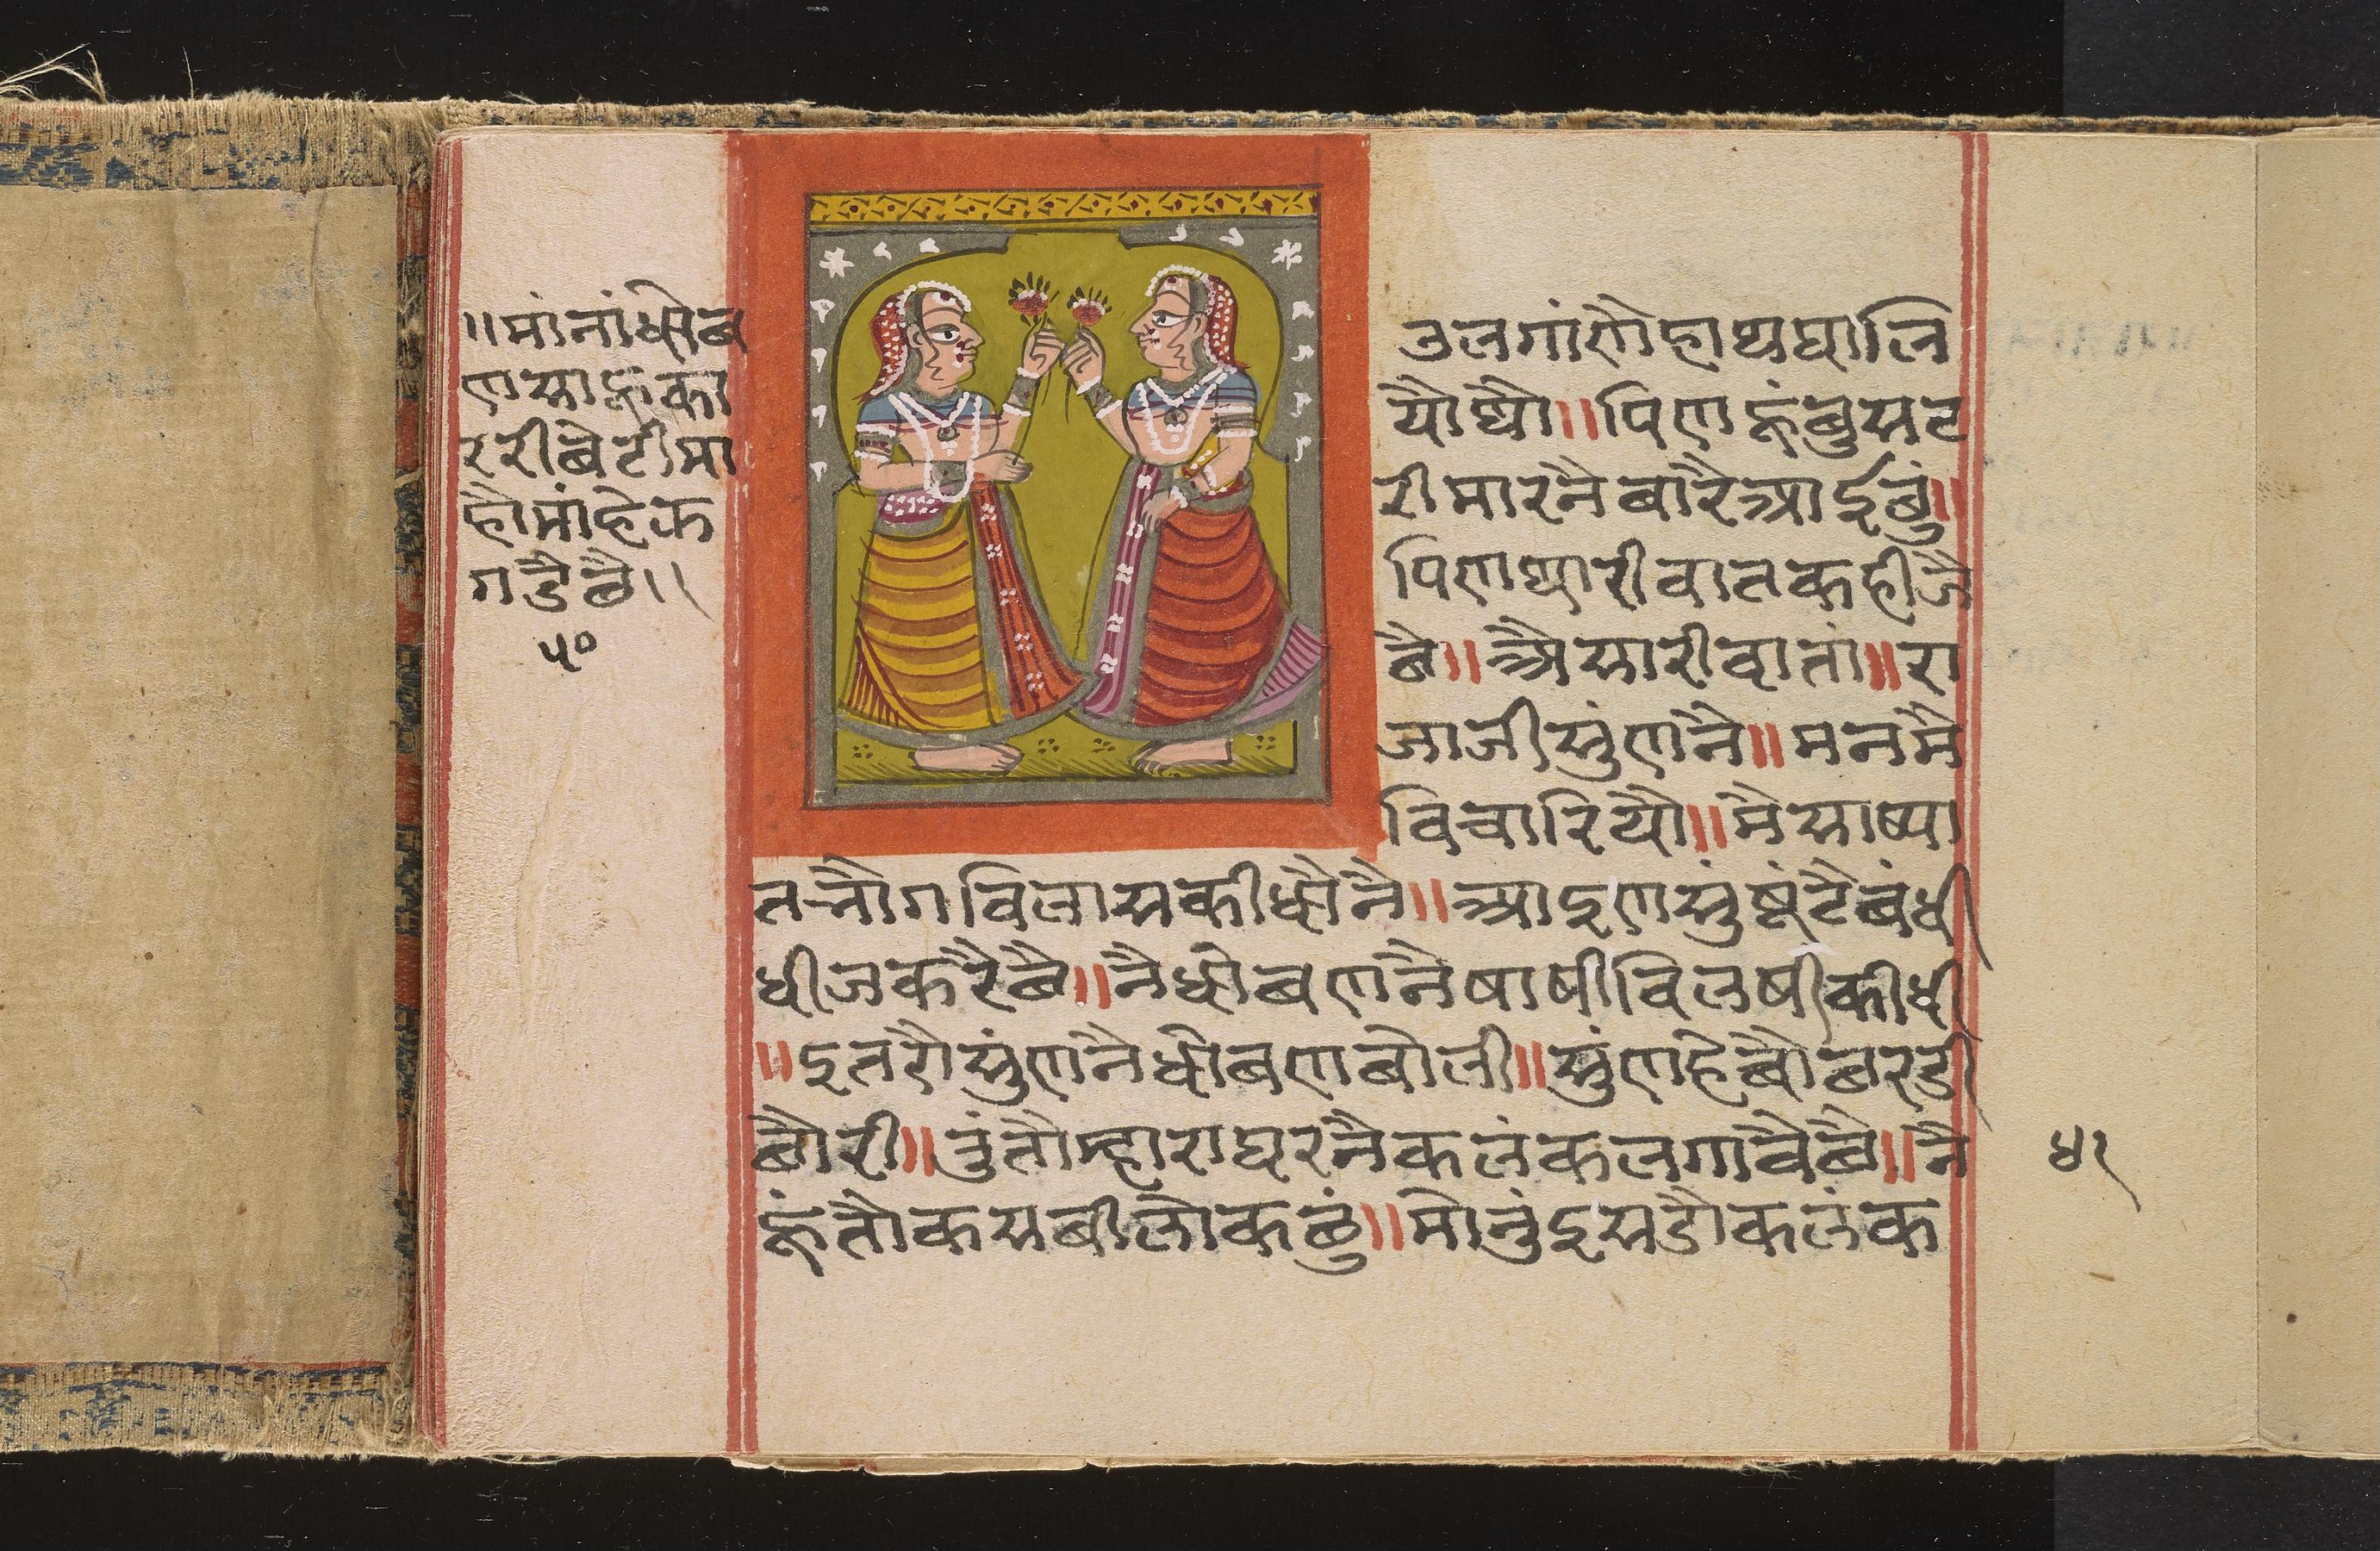 ॥मांनांधोब
णसाहूका
ररीबेटीमा
हौमांहेक
गडैछै॥
५०
उलगांरौहाथघालि
यौघौ॥पिणहूंबुसट
रीमारनैबारैआईछुं॥
पिणथारीवातकहीजै
छै॥ऐसारीवातां॥रा
जाजीसुंणनै॥मनमै
विचारियौ॥मैसाष्या
तभौगविलासकीधौनै॥आइणसुंषूंटैबंधी
धीजकरैछै॥नैधोबणनैषाषीविलषीकीधी
॥इतरौसुंणनैधोबणबोली॥सुंणहेछौकरडी
छौरी॥तुंतौम्हाराघरनैकलंकलगावैछै॥नै
हूंतौकसबीलोकछुं॥मोनुंइसडौकलंक
५१